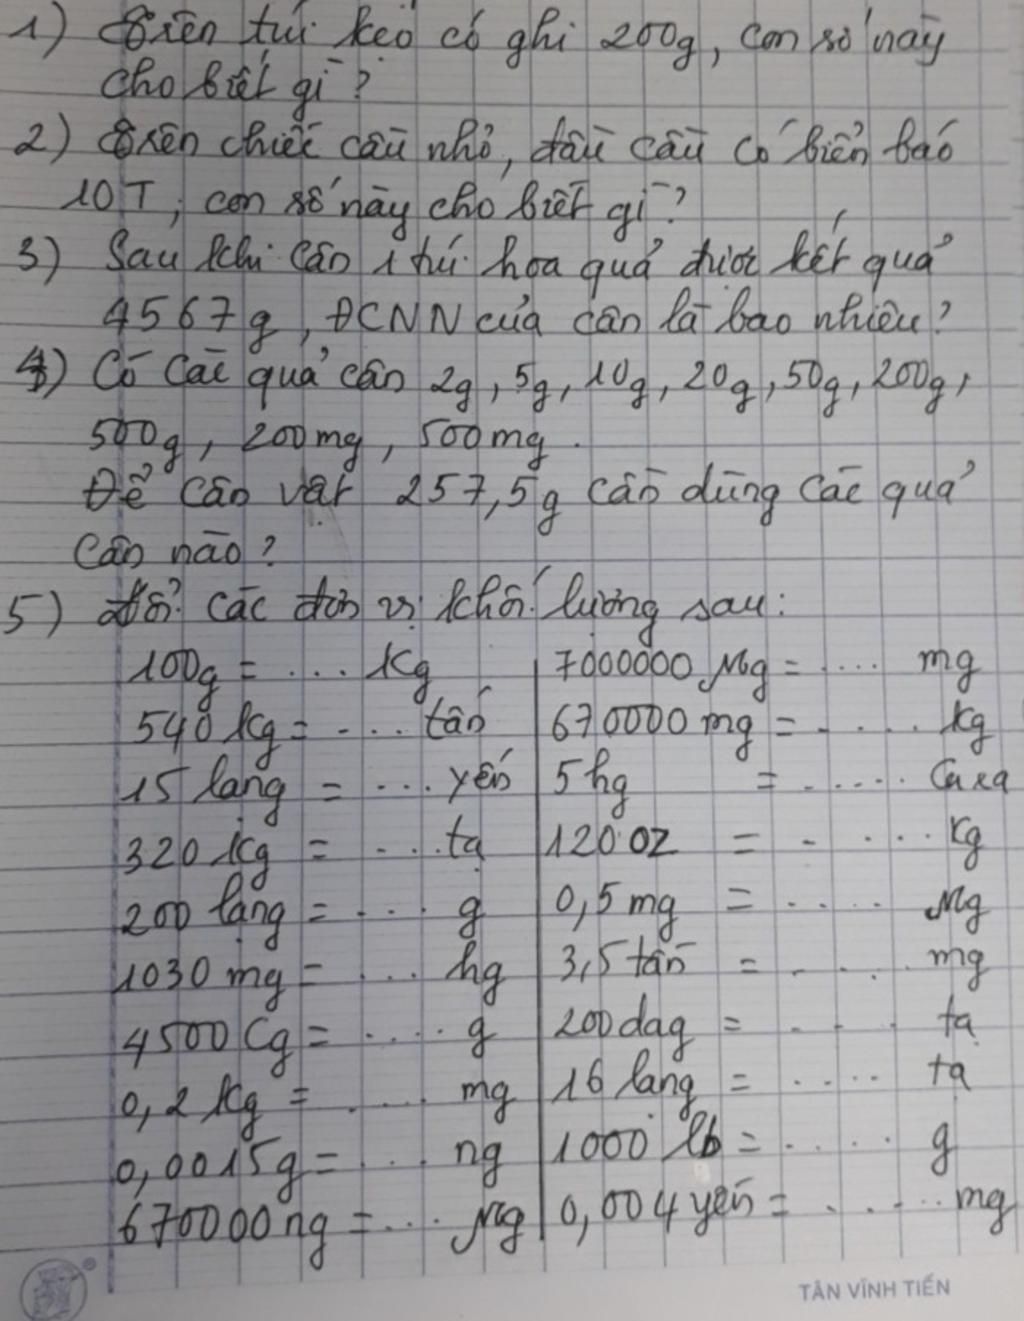 1) Trên túi kẹo có ghi 200g, con số này
cho biết gì?
2) Trên chiếc cầu nhỏ, đầu cầu có biển báo
10T, con số này cho biết gì?
3) Sau khi cân 1 túi hoa quả được kết quả
4567g, ĐCNN của cân là bao nhiêu?
4) Có các quả cân 2g, 5g, 10g, 20g, 50g, 200g,
500g, 200mg, 500mg.
Để cân vật 257,5g cần dùng các quả
cân nào?
5) Đổi các đơn vị khối lượng sau:
100g = .... Kg
540 kg = .... tấn
15 lạng = .... yến
320 kg = .... tạ
200 lạng = .... g
1030 mg = .... hg
4500 Cg = .... g
0,2 kg = .... mg
0,0015g = .... ng
670000 ng = .... Mg
7000000 Mg = .... mg
670000 mg = ..... kg
5 hg = ..... Cara
120 OZ = ..... kg
0,5 mg = ..... Mg
3,5 tấn = ..... mg
200 dag = ..... tạ
16 lạng = ..... tạ
1000 lb = ..... g
0,004 yến = ..... mg
TÂN VĨNH TIẾN